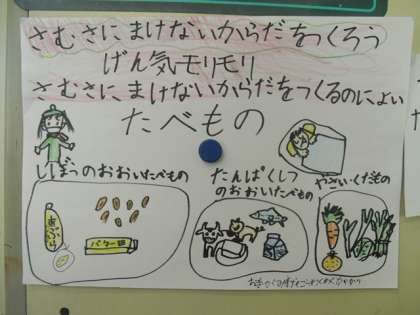 さむさにまけないからだをつくろう
げん気モリモリ
さむさにまけないからだをつくるのによい
たべもの
しぼうのおおいたべもの
たんぱくしつ
のおおいたべもの
やさい・くだもの
あぶら
バター